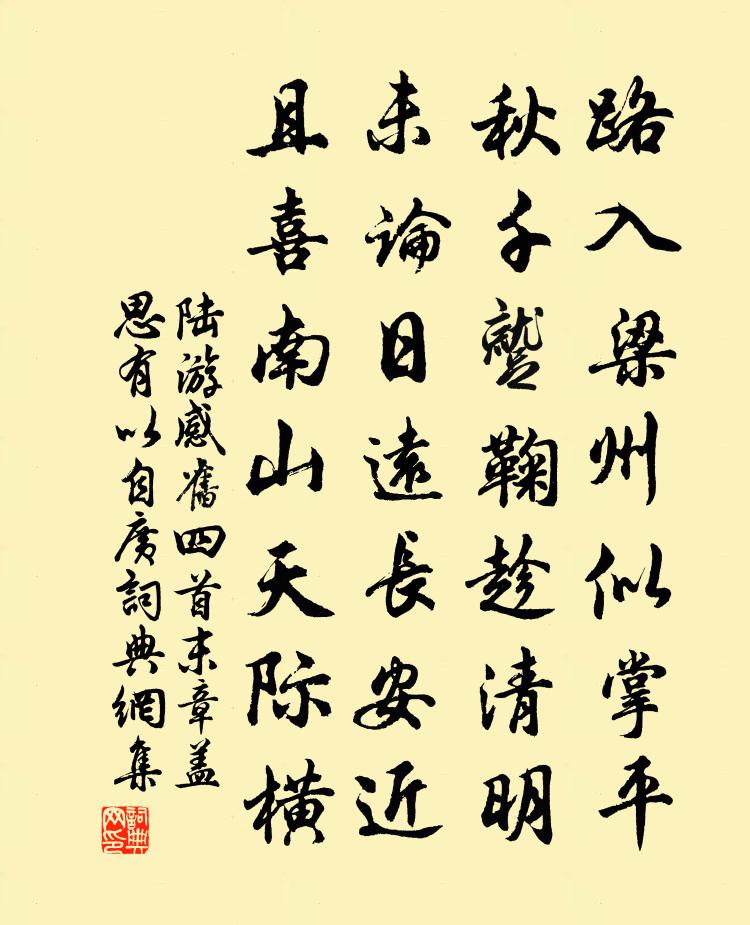 路入梁州似掌平
秋千蹵鞠趁清明
未論日遠長安近
且喜南山天际横
陆游感舊四首末章盖
思有以自廣詞典網集
詞典网印